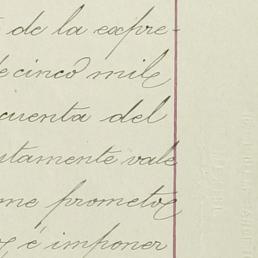 de la expre-
de cinco mil
cuenta del
stamente vale
me prometo
é imponer